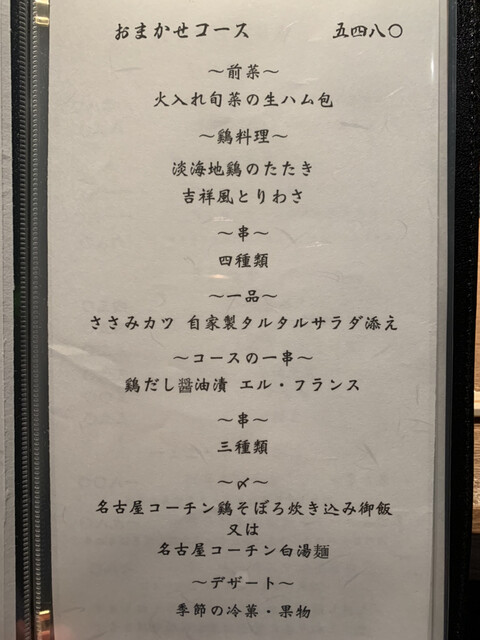 おまかせコース 五四八〇
～前菜～
火入れ旬菜の生ハム包
～鶏料理～
淡海地鶏のたたき
吉祥風とりわさ
～串～
四種類
～一品～
ささみカツ 自家製タルタルサラダ添え
～コースの一串～
鶏だし醤油漬 エル・フランス
～串～
三種類
～〆～
名古屋コーチン鶏そぼろ炊き込み御飯
又は
名古屋コーチン白湯麺
～デザート～
季節の冷菓・果物